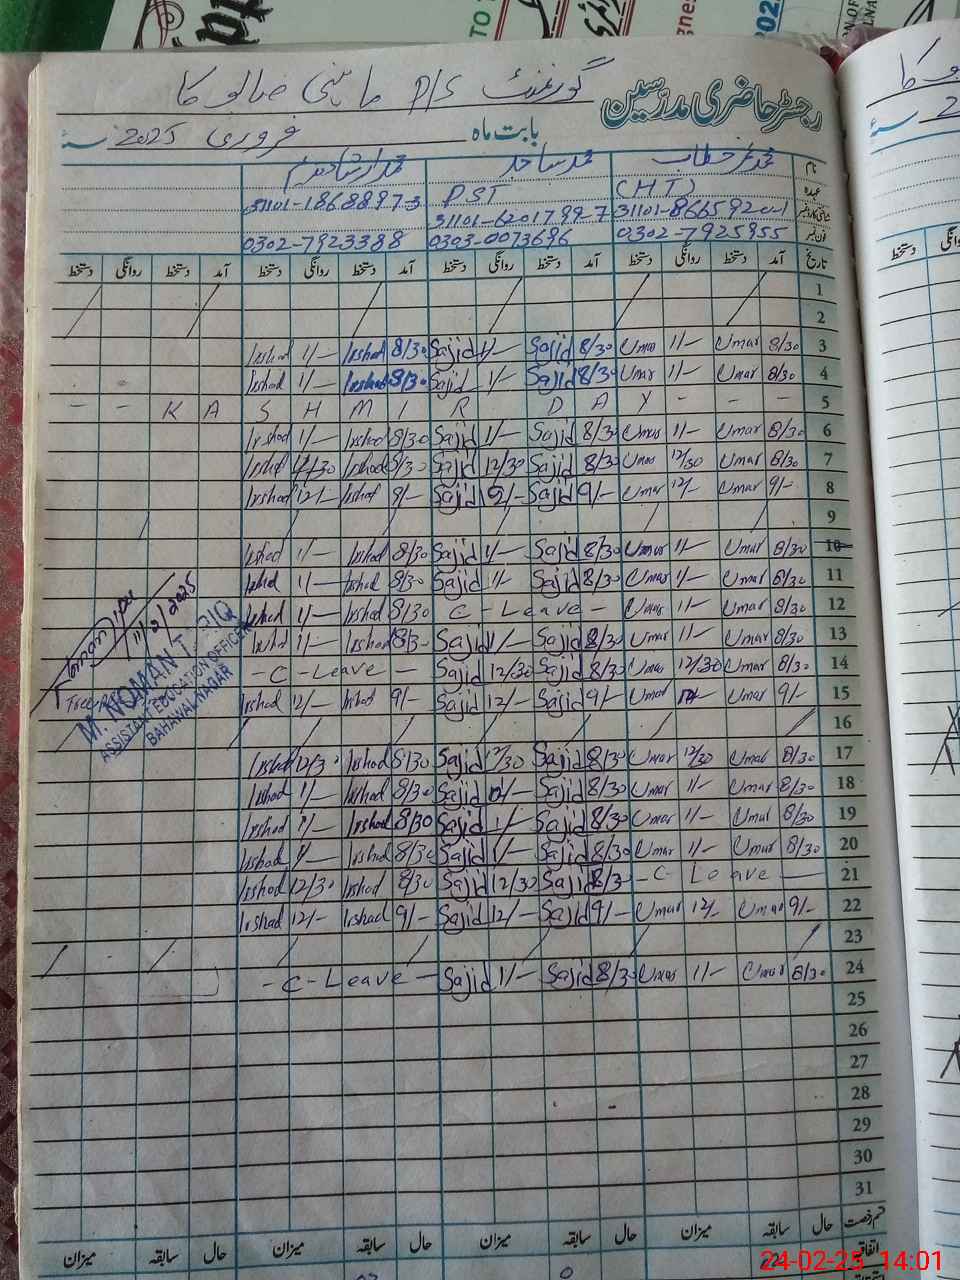 گورنمنٹ P/S
رجسٹر حاضری مدرسین
بابت ماہ فروری 2025 سنہ
نام محمد عمر خطاب محمد ساجد محمد ارشاد
عہدہ (HT) PST
شناختی کارڈ نمبر 31101-8665920-1 31101-6201799-7 31101-1868897-3
فون نمبر 0302-7925955 0303-0073696 0302-7923388
تاریخ آمد دستخط روانگی دستخط آمد دستخط روانگی دستخط آمد دستخط روانگی دستخط آمد دستخط روانگی دستخط
1
2
Irshad 1/- Irshad 8/30 Sajid 1/- Sajid 8/30 Umar 1/- Umar 8/30 3
Irshad 1/- Irshad 8/30 Sajid 1/- Sajid 8/30 Umar 1/- Umar 8/30 4
- - K A S H M I R D A Y - - - 5
Irshad 1/- Irshad 8/30 Sajid 1/- Sajid 8/30 Umar 1/- Umar 8/30 6
Irshad 12/30 Irshad 8/30 Sajid 12/30 Sajid 8/30 Umar 12/30 Umar 8/30 7
Irshad 12/- Irshad 9/- Sajid 12/- Sajid 9/- Umar 12/- Umar 9/- 8
9
Irshad 1/- Irshad 8/30 Sajid 1/- Sajid 8/30 Umar 1/- Umar 8/30 10
Irshad 1/- Irshad 8/30 Sajid 1/- Sajid 8/30 Umar 1/- Umar 8/30 11
Irshad 1/- Irshad 8/30 C-Leave - Umar 1/- Umar 8/30 12
Irshad 1/- Irshad 8/30 Sajid 1/- Sajid 8/30 Umar 1/- Umar 8/30 13
- C-Leave - Sajid 12/30 Sajid 8/30 Umar 12/30 Umar 8/30 14
Irshad 12/- Irshad 9/- Sajid 12/- Sajid 9/- Umar 12/- Umar 9/- 15
16
Irshad 12/30 Irshad 8/30 Sajid 12/30 Sajid 8/30 Umar 12/30 Umar 8/30 17
Irshad 1/- Irshad 8/30 Sajid 1/- Sajid 8/30 Umar 1/- Umar 8/30 18
Irshad 1/- Irshad 8/30 Sajid 1/- Sajid 8/30 Umar 1/- Umar 8/30 19
Irshad 1/- Irshad 8/30 Sajid 1/- Sajid 8/30 Umar 1/- Umar 8/30 20
Irshad 12/30 Irshad 8/30 Sajid 12/30 Sajid 8/30 - C-Leave - 21
Irshad 12/- Irshad 9/- Sajid 12/- Sajid 9/- Umar 12/- Umar 9/- 22
23
- C-Leave - Sajid 1/- Sajid 8/30 Umar 1/- Umar 8/30 24
25
26
27
28
29
30
31
قسم رخصت حال سابقہ میزان حال سابقہ میزان حال سابقہ میزان حال سابقہ میزان
اتفاقیہ
11/2/2025
M. NOMAN TARIQ
ASSISTANT EDUCATION OFFICER
BAHAWALNAGAR
24-02-25 14:01